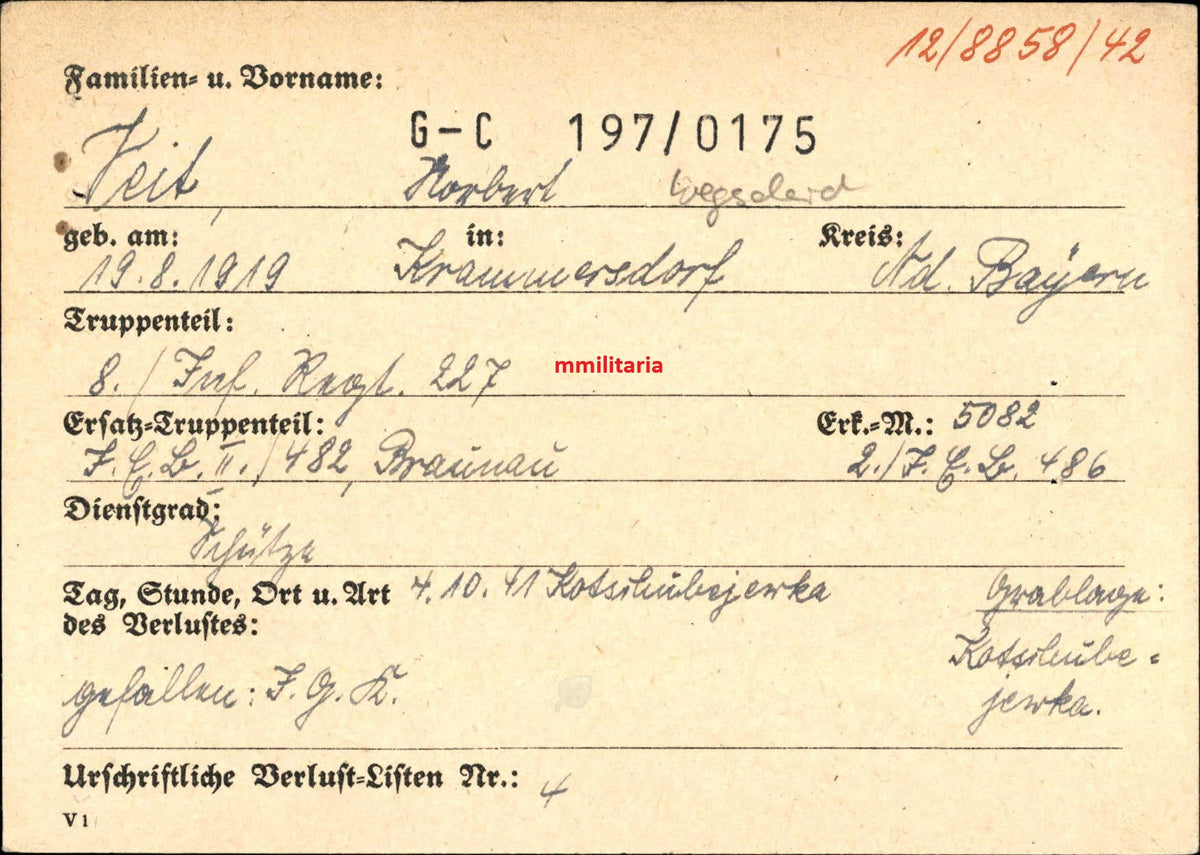 12/8858/42
Familien- u. Vorname:
G-C 197/0175
Veit, Norbert Wegscheid
geb. am: in: Kreis:
19.8.1919 Krammersdorf Nd. Bayern
Truppenteil:
8./Inf. Regt. 227
mmilitaria
Ersatz-Truppenteil: Erk.-M.: 5082
I.E.B. II./482, Braunau 2./I.E.B. 486
Dienstgrad:
Schütze
Tag, Stunde, Ort u. Art 4.10.41 Kotschubejewka Grablage:
des Verlustes:
Kotschube-
gefallen: I.G.K. jewka.
Urschriftliche Verlust-Listen Nr.: 4
V 1